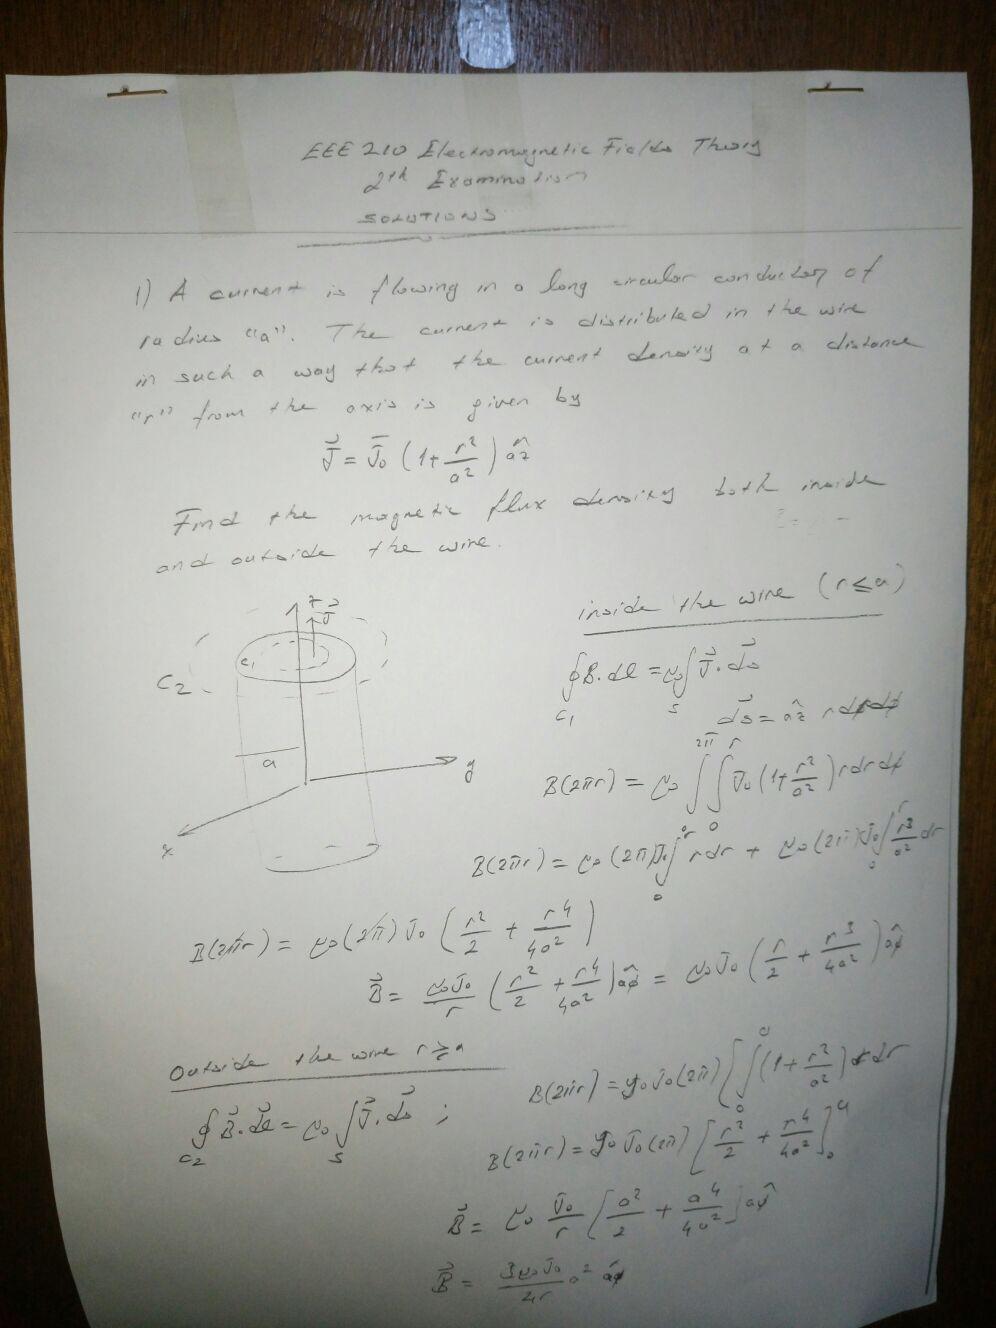 EEE 210 Electromagnetic Fields Theory
2th Examination
SOLUTIONS
1) A current is flowing in a long circular conductor of
radius "a". The current is distributed in the wire
in such a way that the current density at a distance
"r" from the axis is given by
J⃗ = J̄₀ (1+ r²/a²) âz
Find the magnetic flux density both inside
and outside the wire.
z J⃗
C₁
C₂
a
y
x
inside the wire (r ≤ a)
∮_C₁ B·dl = μ₀ ∫_S J⃗·ds⃗
ds⃗ = âz rdrdφ
B(2πr) = μ₀ ∫₀^2π ∫₀^r J₀ (1+ r²/a²) r dr dφ
B(2πr) = μ₀ (2π) J₀ ∫₀^r r dr + μ₀ (2π) J₀ ∫₀^r r³/a² dr
B(2πr) = μ₀ (2π) J₀ (r²/2 + r⁴/4a²)
B⃗ = μ₀J₀/r (r²/2 + r⁴/4a²) âφ = μ₀J₀ (r/2 + r³/4a²) âφ
Outside the wire r ≥ a
∮_C₂ B⃗·dl⃗ = μ₀ ∫_S J⃗·ds⃗ ;
B(2πr) = μ₀ J₀ (2π) [∫₀^a (1+ r²/a²) r dr
B(2πr) = μ₀ J₀ (2π) [r²/2 + r⁴/4a²]₀^a
B⃗ = μ₀ J₀/r [a²/2 + a⁴/4a²] âφ
B⃗ = 3μ₀J₀/4r a² âφ